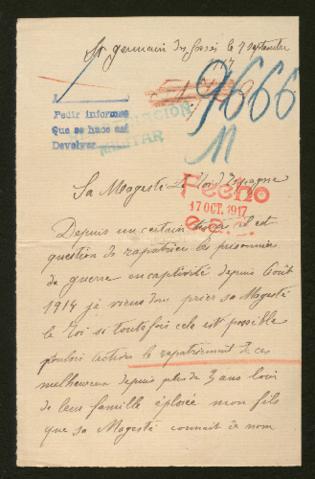 St germain des fossés le 7 septembre
17
9666
11
Pedir informes
Que se hace así
Devolver
MILITAR
Sa Magesté Le Roi d'Espagne
Fecho
17 OCT. 1917
Depuis un certain temps il est
question de rapatrier les prisonniers
de guerre en captivité depuis Août
1914 je viens donc prier sa Magesté
le Roi si toutefois cela est possible
le rapatriement de ces
malheureux depuis plus de 3 ans loin
de leur famille éplorée mon fils
que sa Magesté connait le nom